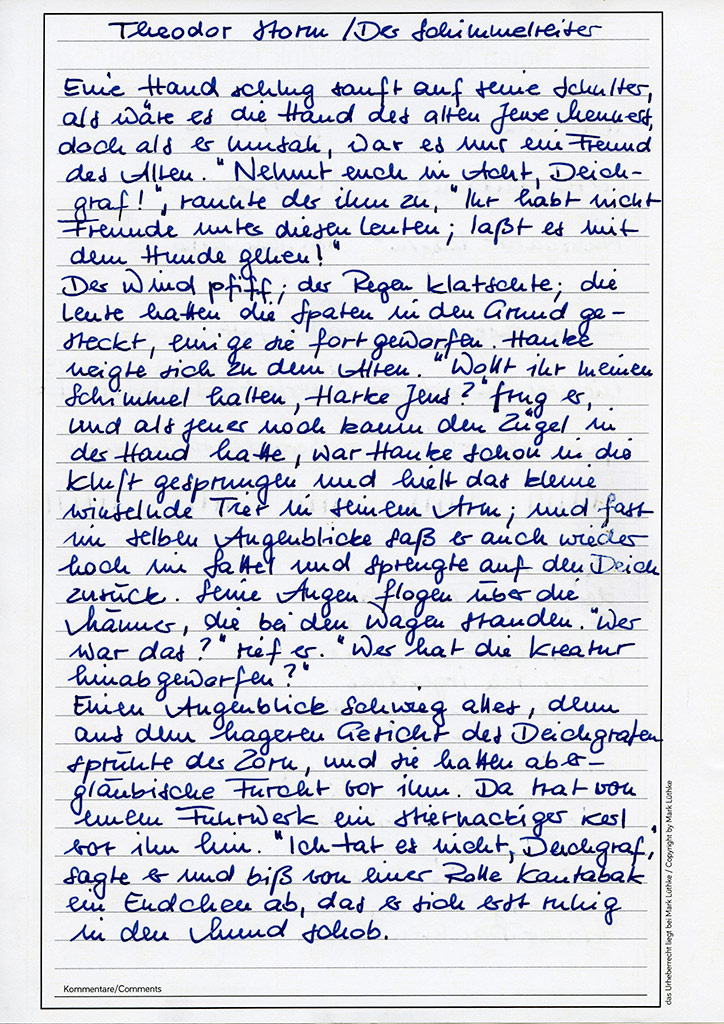 Theodor Storm / Der Schimmelreiter
Eine Hand schlug sanft auf seine Schulter,
als wäre es die Hand des alten Jewe Manners,
doch als er umsah, war es nur ein Freund
des Alten. "Nehmt euch in Acht, Deich-
graf!", raunte der ihm zu, "Ihr habt nicht
Freunde unter diesen Leuten; laßt es mit
dem Hunde gehen!"
Der Wind pfiff; der Regen klatschte; die
Leute hatten die Spaten in den Grund ge-
steckt, einige sie fortgeworfen. Hauke
neigte sich zu dem Alten. "Wollt ihr meinen
Schimmel halten, Harke Jens?" frug er,
und als jener noch kaum den Zügel in
der Hand hatte, war Hauke schon in die
Kluft gesprungen und hielt das kleine
winselnde Tier in seinem Arm; und fast
im selben Augenblicke saß er auch wieder
hoch im Sattel und sprengte auf den Deich
zurück. Seine Augen flogen über die
Männer, die bei den Wagen standen. "Wer
war das?" rief er. "Wer hat die Kreatur
hinabgeworfen?"
Einen Augenblick schwieg alles, denn
aus dem hageren Gesicht des Deichgrafen
sprühte der Zorn, und sie hatten aber-
gläubische Furcht vor ihm. Da trat von
einem Fuhrwerk ein stiernackiger Kerl
vor ihn hin. "Ich tat es nicht, Deichgraf,"
sagte er und biß von einer Rolle Kautabak
ein Endchen ab, das er sich erst ruhig
in den Mund schob.
Kommentare/Comments
das Urheberrecht liegt bei Mark Lüthke / Copyright by Mark Lüthke